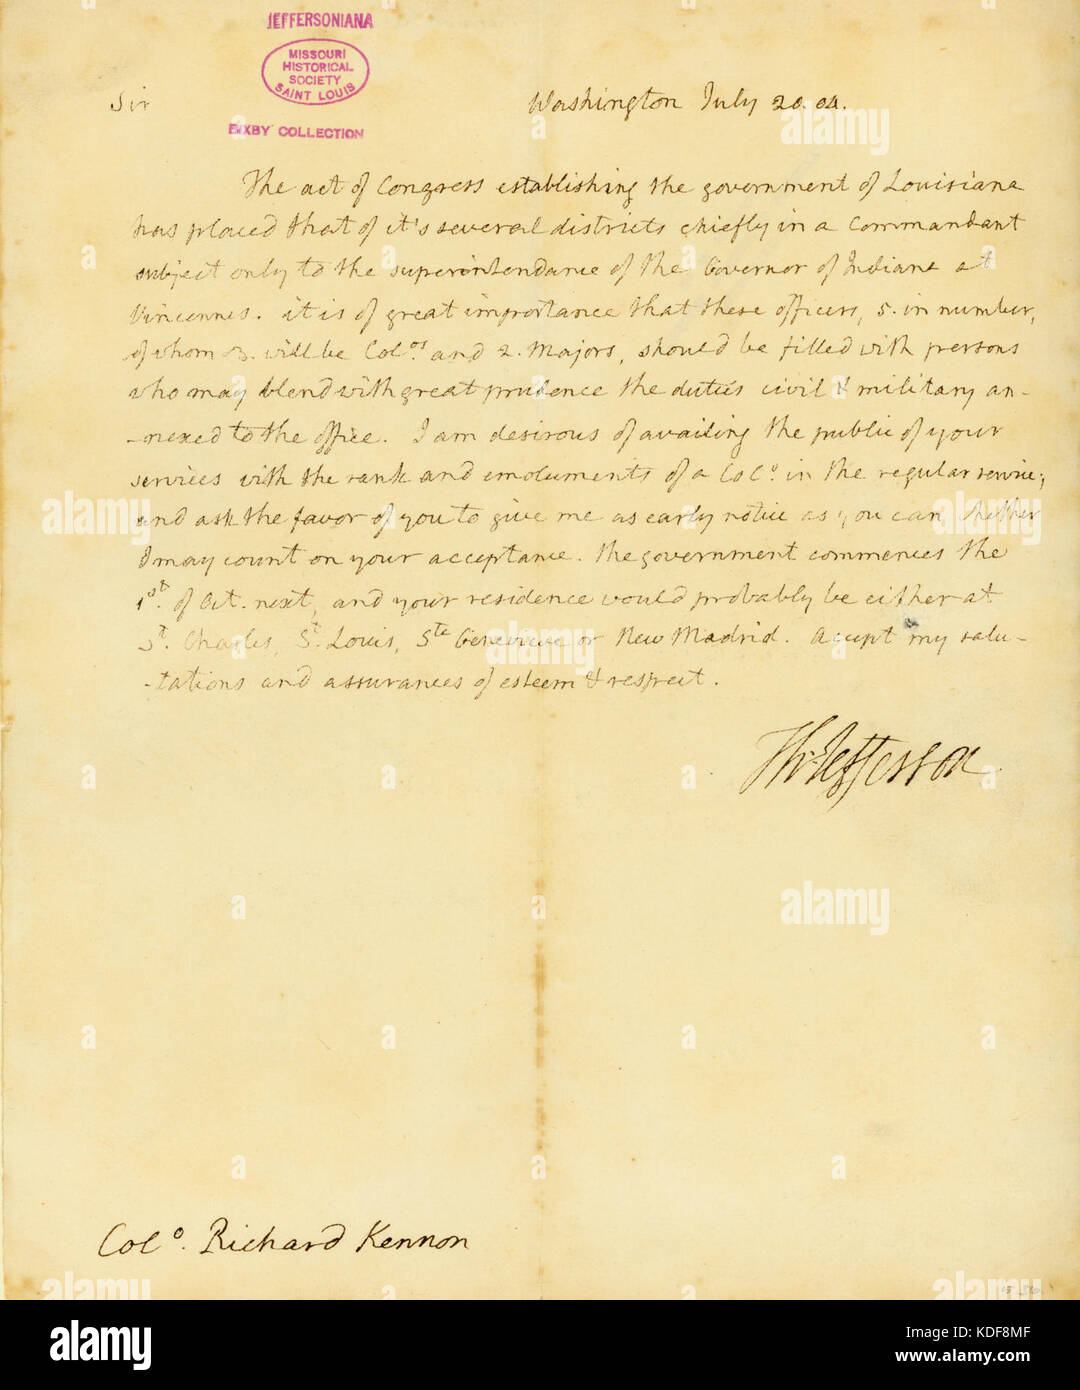 JEFFERSONIANA
MISSOURI
HISTORICAL
SOCIETY
SAINT LOUIS
BIXBY COLLECTION
Sir
Washington July 20. 04.
The act of Congress establishing the government of Louisiana
has placed that of it's several districts chiefly in a Commandant
subject only to the superintendance of the Governor of Indiana at
Vincennes. it is of great importance that these officers, 5. in number,
of whom 3. will be Colos and 2. Majors, should be filled with persons
who may blend with great prudence the duties civil & military an-
-nexed to the office. I am desirous of availing the public of your
services with the rank and emoluments of a Colo. in the regular service;
and ask the favor of you to give me as early notice as you can whether
I may count on your acceptance. the government commences the
1st. of Oct. next, and your residence would probably be either at
St. Charles, St. Louis, Ste Genevieve or New Madrid. Accept my salu-
-tations and assurances of esteem & respect.
Th: Jefferson
Colo. Richard Kennon
alamy
a alamy stock photo
KDF8MF
www.alamy.com